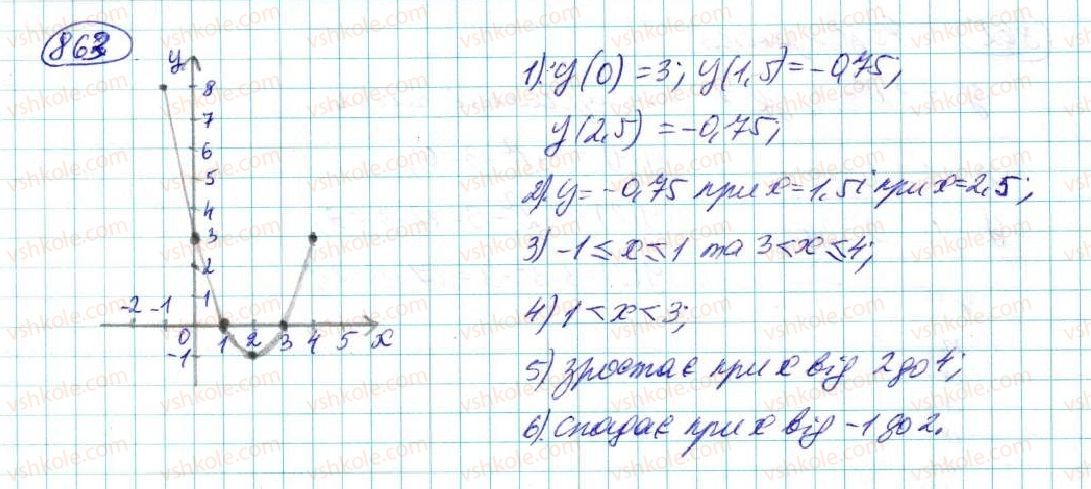 863
y
8
7
6
5
4
3
2
1
-2 -1 0 1 2 3 4 5 x
-1
1) y(0) = 3; y(1,5) = -0,75;
y(2,5) = -0,75;
2) y = -0,75 при x = 1,5 і при x = 2,5;
3) -1 ≤ x ≤ 1 та 3 < x ≤ 4;
4) 1 < x < 3;
5) зростає при x від 2 до 4;
6) спадає при x від -1 до 2.
vshkole.com